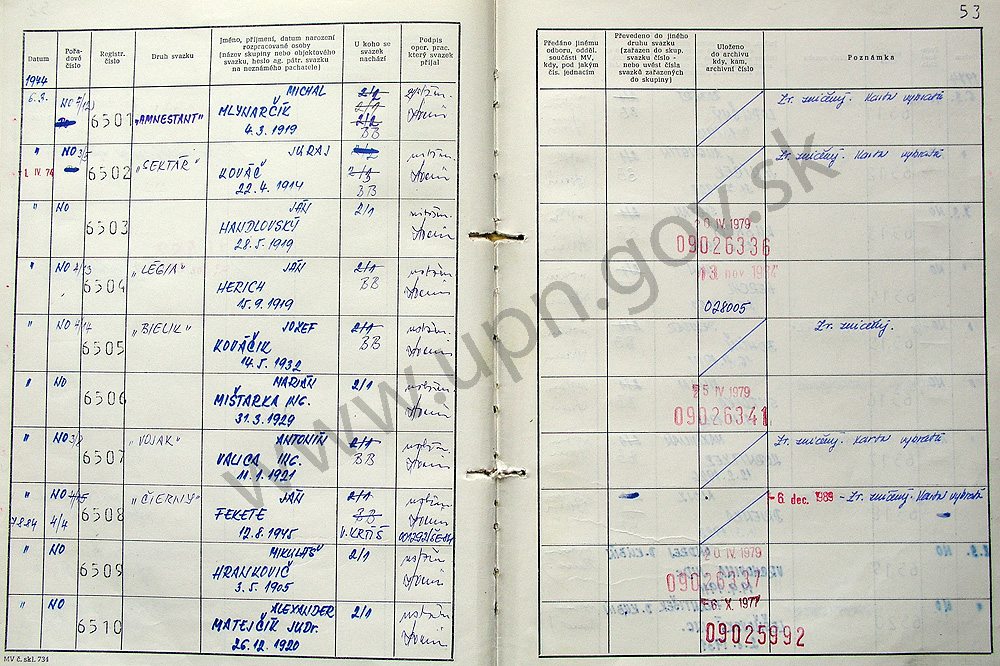 53
Datum
Pořa-
dové
číslo
Registr.
číslo
Druh svazku
Jméno, příjmení, datum narození
rozpracované osoby
(název skupiny nebo objektového
svazku, heslo ag. pátr. svazku
na neznámého pachatele)
U koho se
svazek
nachází
Podpis
oper. prac.
který svazek
přijal
Předáno jinému
odboru, odděl.
součásti MV,
kdy, pod jakým
čís. jednacím
Převedeno do jiného
druhu svazku
(zařazen do skup.
svazku číslo -
nebo uvést čísla
svazků zařazených
do skupiny)
Uloženo
do archivu
kdy, kam,
archivní číslo
Poznámka
1974
6.3. NO 6501 „AMNESTANT" MICHAL
MLYNARČÍK
4.3.1919
2/1
2/1
2/2
BB
Zv. zničený. Karta vybratá
" NO 3/5 6502 „SEKTÁR" JURAJ
1. IV. 74
KOVÁČ
22.4.1914
BB
Zv. zničený. Karta vybratá
" NO 6503 JÁN 2/1
HANDLOVSKÝ
28.5.1919
20 IV 1979
09026336
" NO 6504 „LÉGIA" JÁN 2/1
HERICH BB
15.9.1919
028005
" NO 4/14 6505 „BIELIK" JOZEF 2/1
KOVÁČIK BB
14.5.1932
Zv. zničený.
" NO 6506 MARIÁN 2/1
MIŠTARKA ING.
31.3.1929
25 IV 1979
09026341
" NO 3/2 6507 „VOJAK" ANTONÍN 2/1
VALICA ING. BB
11.1.1921
Zv. zničený. Karta vybratá
" NO 6508 „ČIERNY" JÁN 2/1
4/4
FEKETE BB
12.8.1945 V. KRTÍŠ
- 6. dec. 1989 - Zv. zničený. Karta vybratá
" NO 6509 MIKULÁŠ 2/1
HRANKOVIČ
3.5.1905
20 IV 1979
09026337
" NO 6510 ALEXANDER 2/1
MATEJČÍK JUDr.
26.12.1920
X 1977
09025992
MV č. skl. 734
www.upn.gov.sk